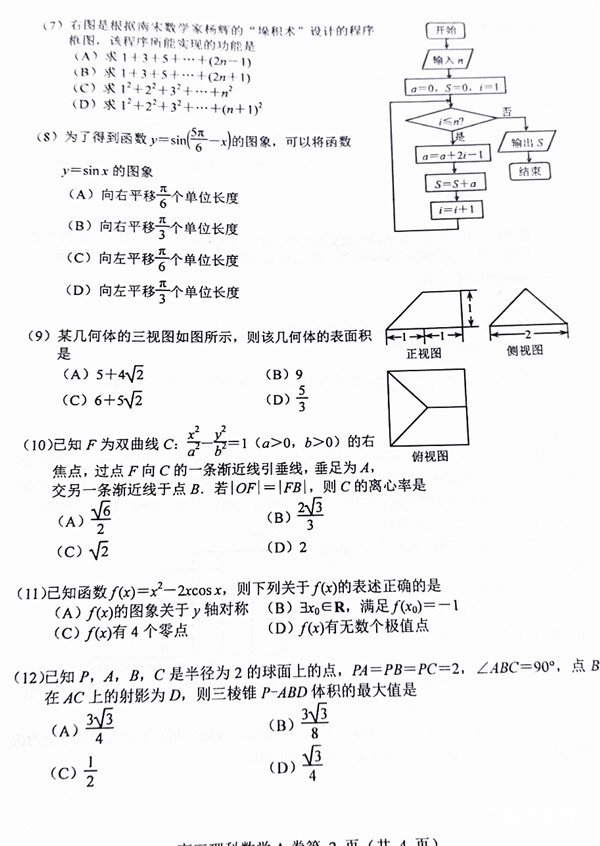 (7) 右图是根据南宋数学家杨辉的“垛积术”设计的程序
框图，该程序所能实现的功能是
(A) 求 1+3+5+⋯+(2n−1)
(B) 求 1+3+5+⋯+(2n+1)
(C) 求 1²+2²+3²+⋯+n²
(D) 求 1²+2²+3²+⋯+(n+1)²
开始
输入 n
a=0，S=0，i=1
i≤n?
否
是
输出 S
a=a+2i−1
结束
S=S+a
i=i+1
(8) 为了得到函数 y=sin(5π/6−x)的图象，可以将函数
y=sin x 的图象
(A) 向右平移π/6个单位长度
(B) 向右平移π/3个单位长度
(C) 向左平移π/6个单位长度
(D) 向左平移π/3个单位长度
(9) 某几何体的三视图如图所示，则该几何体的表面积
是
(A) 5+4√2 (B) 9
(C) 6+5√2 (D) 5/3
1
1 1
2
正视图 侧视图
俯视图
(10) 已知 F 为双曲线 C：x²/a²−y²/b²=1（a>0，b>0）的右
焦点，过点 F 向 C 的一条渐近线引垂线，垂足为 A，
交另一条渐近线于点 B．若|OF|=|FB|，则 C 的离心率是
(A) √6/2 (B) 2√3/3
(C) √2 (D) 2
(11) 已知函数 f(x)=x²−2xcos x，则下列关于 f(x)的表述正确的是
(A) f(x)的图象关于 y 轴对称 (B) ∃x₀∈R，满足 f(x₀)=−1
(C) f(x)有 4 个零点 (D) f(x)有无数个极值点
(12) 已知 P，A，B，C 是半径为 2 的球面上的点，PA=PB=PC=2，∠ABC=90°，点 B
在 AC 上的射影为 D，则三棱锥 P-ABD 体积的最大值是
(A) 3√3/4 (B) 3√3/8
(C) 1/2 (D) √3/4
理科数学A 卷第 2 页（共 4 页）